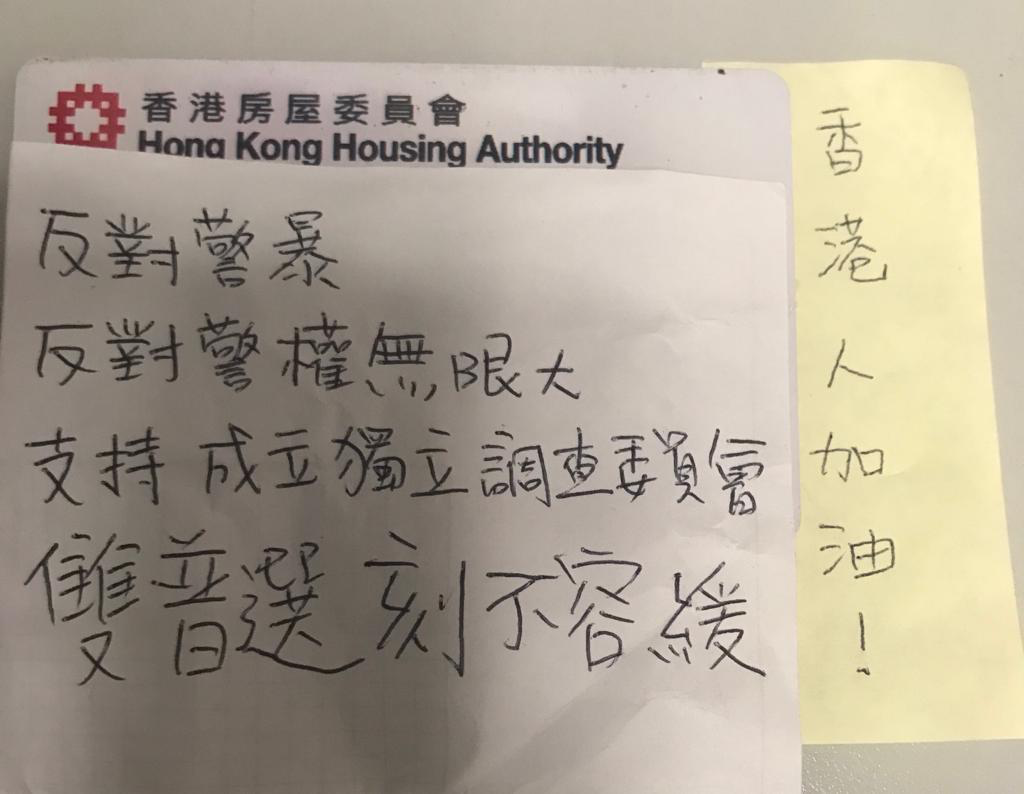 香港房屋委員會
Hong Kong Housing Authority
反對警暴
反對警權無限大
支持成立獨立調查委員會
雙普選刻不容緩
香港人加油！